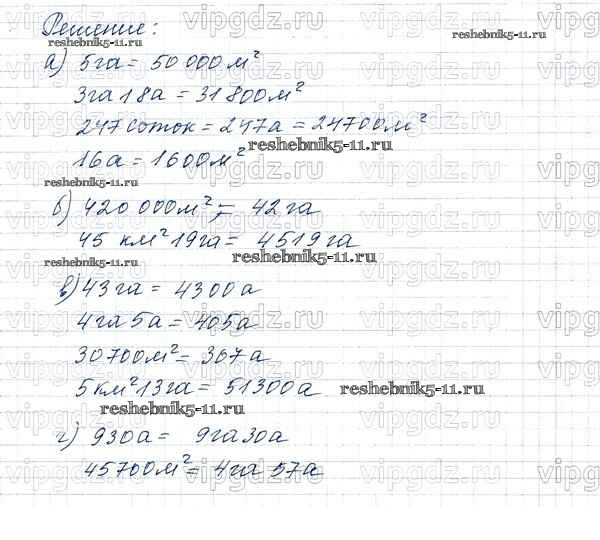 Решение:
reshebnik5-11.ru
reshebnik5-11.ru
а) 5га = 50 000 м²
3га 18а = 31 800 м²
247 соток = 247а = 24700 м²
reshebnik5-11.ru
16а = 1600 м²
reshebnik5-11.ru
б) 420 000 м² = 42 га
45 км² 19га = 4519 га
reshebnik5-11.ru
reshebnik5-11.ru
в) 43га = 4300а
4га 5а = 405а
30700м² = 367а
5км² 13га = 51300а
reshebnik5-11.ru
reshebnik5-11.ru
г) 930а = 9га 30а
45700м² = 4га 57а
vipgdz.ru